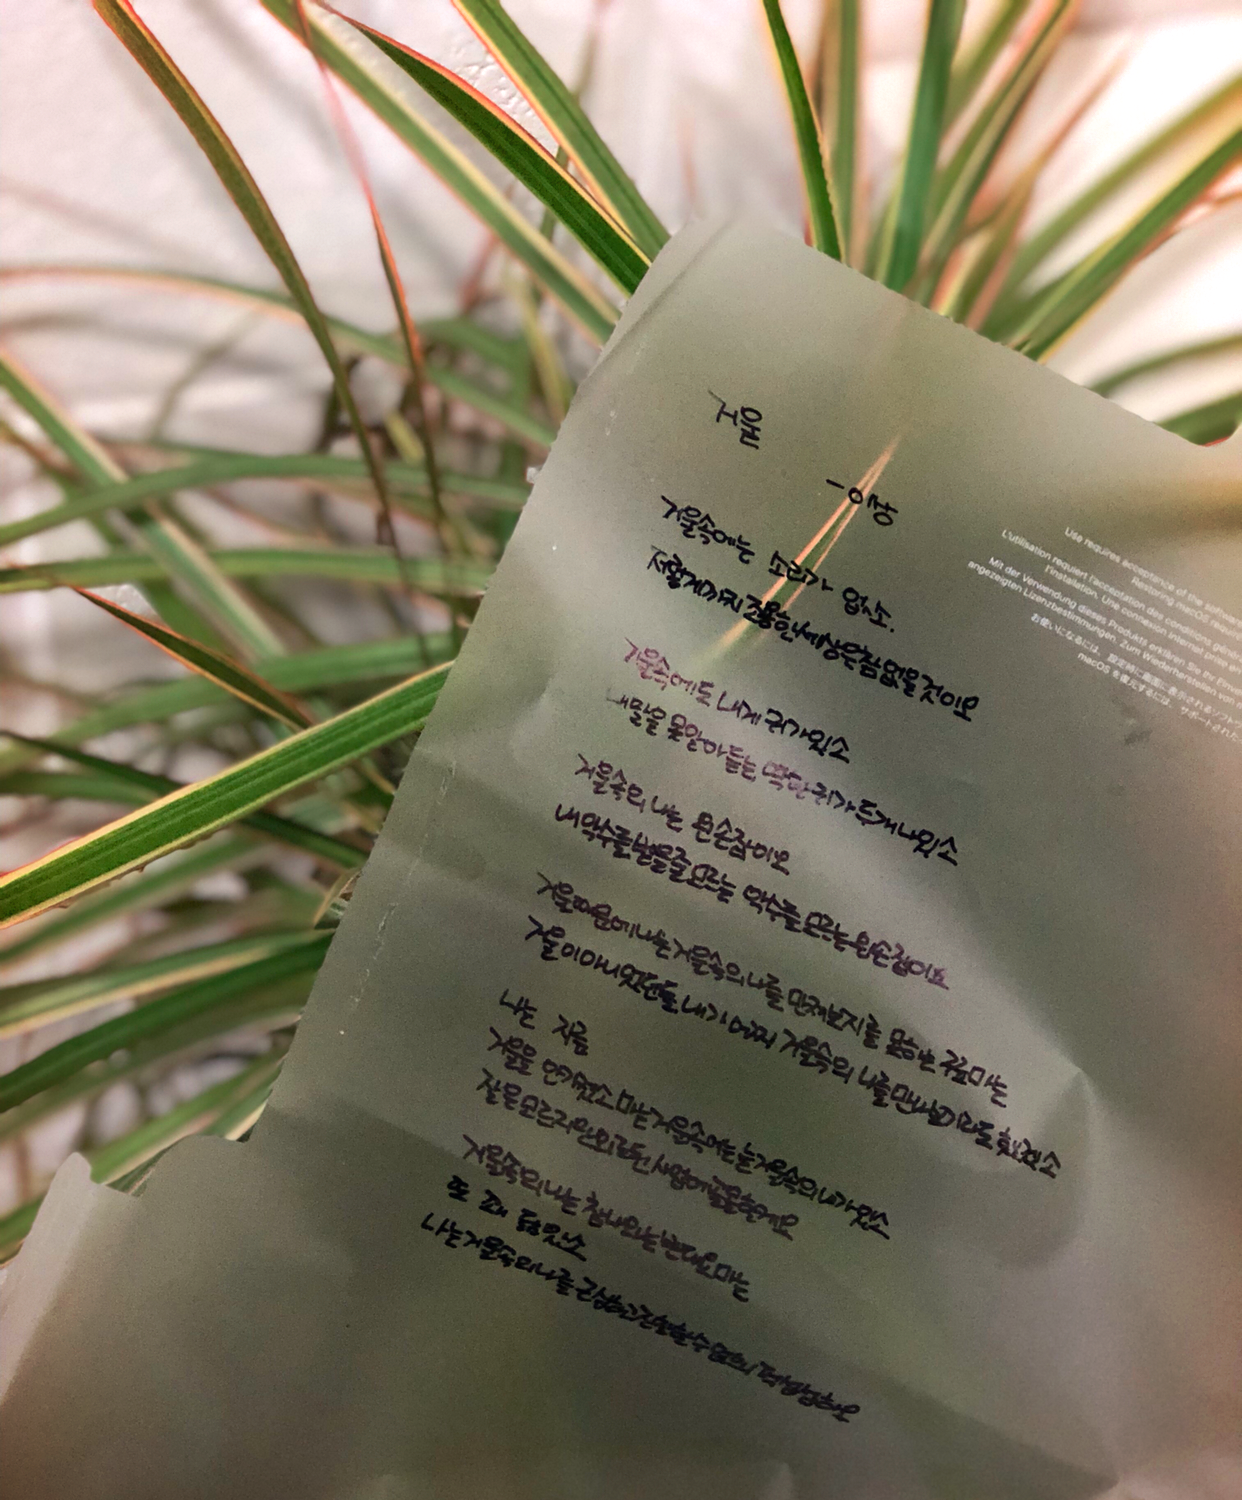 거울
-이상
거울속에는 소리가 없소.
저렇게까지조용한세상은참없을것이오
거울속에도 내게 귀가있소
내말을 못알아듣는 딱한귀가두개나있소
거울속의 나는 왼손잡이오
내악수를받을줄모르는 악수를모르는왼손잡이요
거울때문에나는거울속의나를 만져보지를 못하는 구료마는
거울이아니었던들내가어찌 거울속의 나를만나보기라도했겠소
나는 지금
거울을 안가졌소마는거울속에는늘거울속의내가있소
잘은모르지만외로된사업에골몰할게요
거울속의나는참나와는반대요마는
또 꽤 닮았소
나는거울속의나를근심하고진찰할수없으니퍽섭섭하오
Use requires acceptance of the software
Restoring macOS requires
L'utilisation requiert l'acceptation des conditions
l'installation. Une connexion internet
Mit der Verwendung dieses Produkts erklären Sie Ihr
angezeigten Lizenzbestimmungen. Zum Wiederherstellen von
お使いになるには、設定時に画面に表示されるソフト
macOS を復元するには、サポートされた